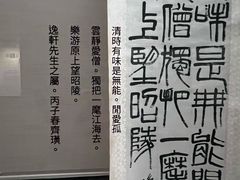 味是無能閒
僧獨把一麾
上望昭陵
清時有味是無能。閒愛孤
雲靜愛僧。獨把一麾江海去。
樂游原上望昭陵。
逸軒先生之屬。丙子春齊璜。